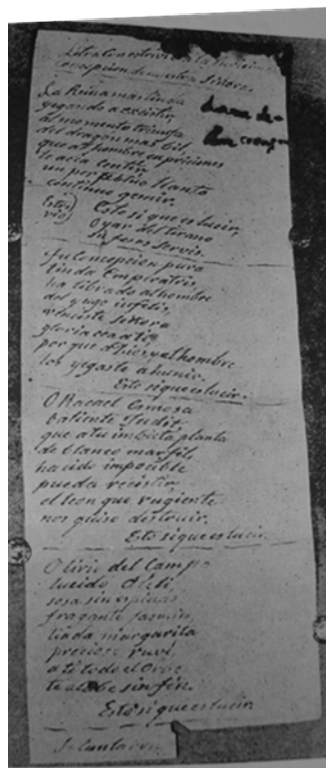 Letra
concepcion de nuestra Señora.
La Reina mas linda
yegando a existir
al momento triunfa
del dragon mas bil,
que al hombre en priciones
le acia centir
un perpetuo llanto
continuo gemir.
Este si que es lucir,
O yan del tirano
Tu Concepcion pura
linda Empiratris,
ha librado al hombre
del yugo infeliz,
gloria
por que a Dios y al hombre
los yegaste a hunir.
Esto si que es lucir.
O Racael ermosa
baliente Judit,
que a tu imbicta planta
de blanco marfil,
ha cido imposible
pueda recistir
el leon que rugiente
nos quiso destruir.
Esto si que es lucir.
O lirio del Campo
lucido Aleli
rosa sin espinas
fragante Jasmin,
linda margarita
precioso ruvi,
a ti todo el Orve
te alabe sin fin.
Esto si que es lucir.